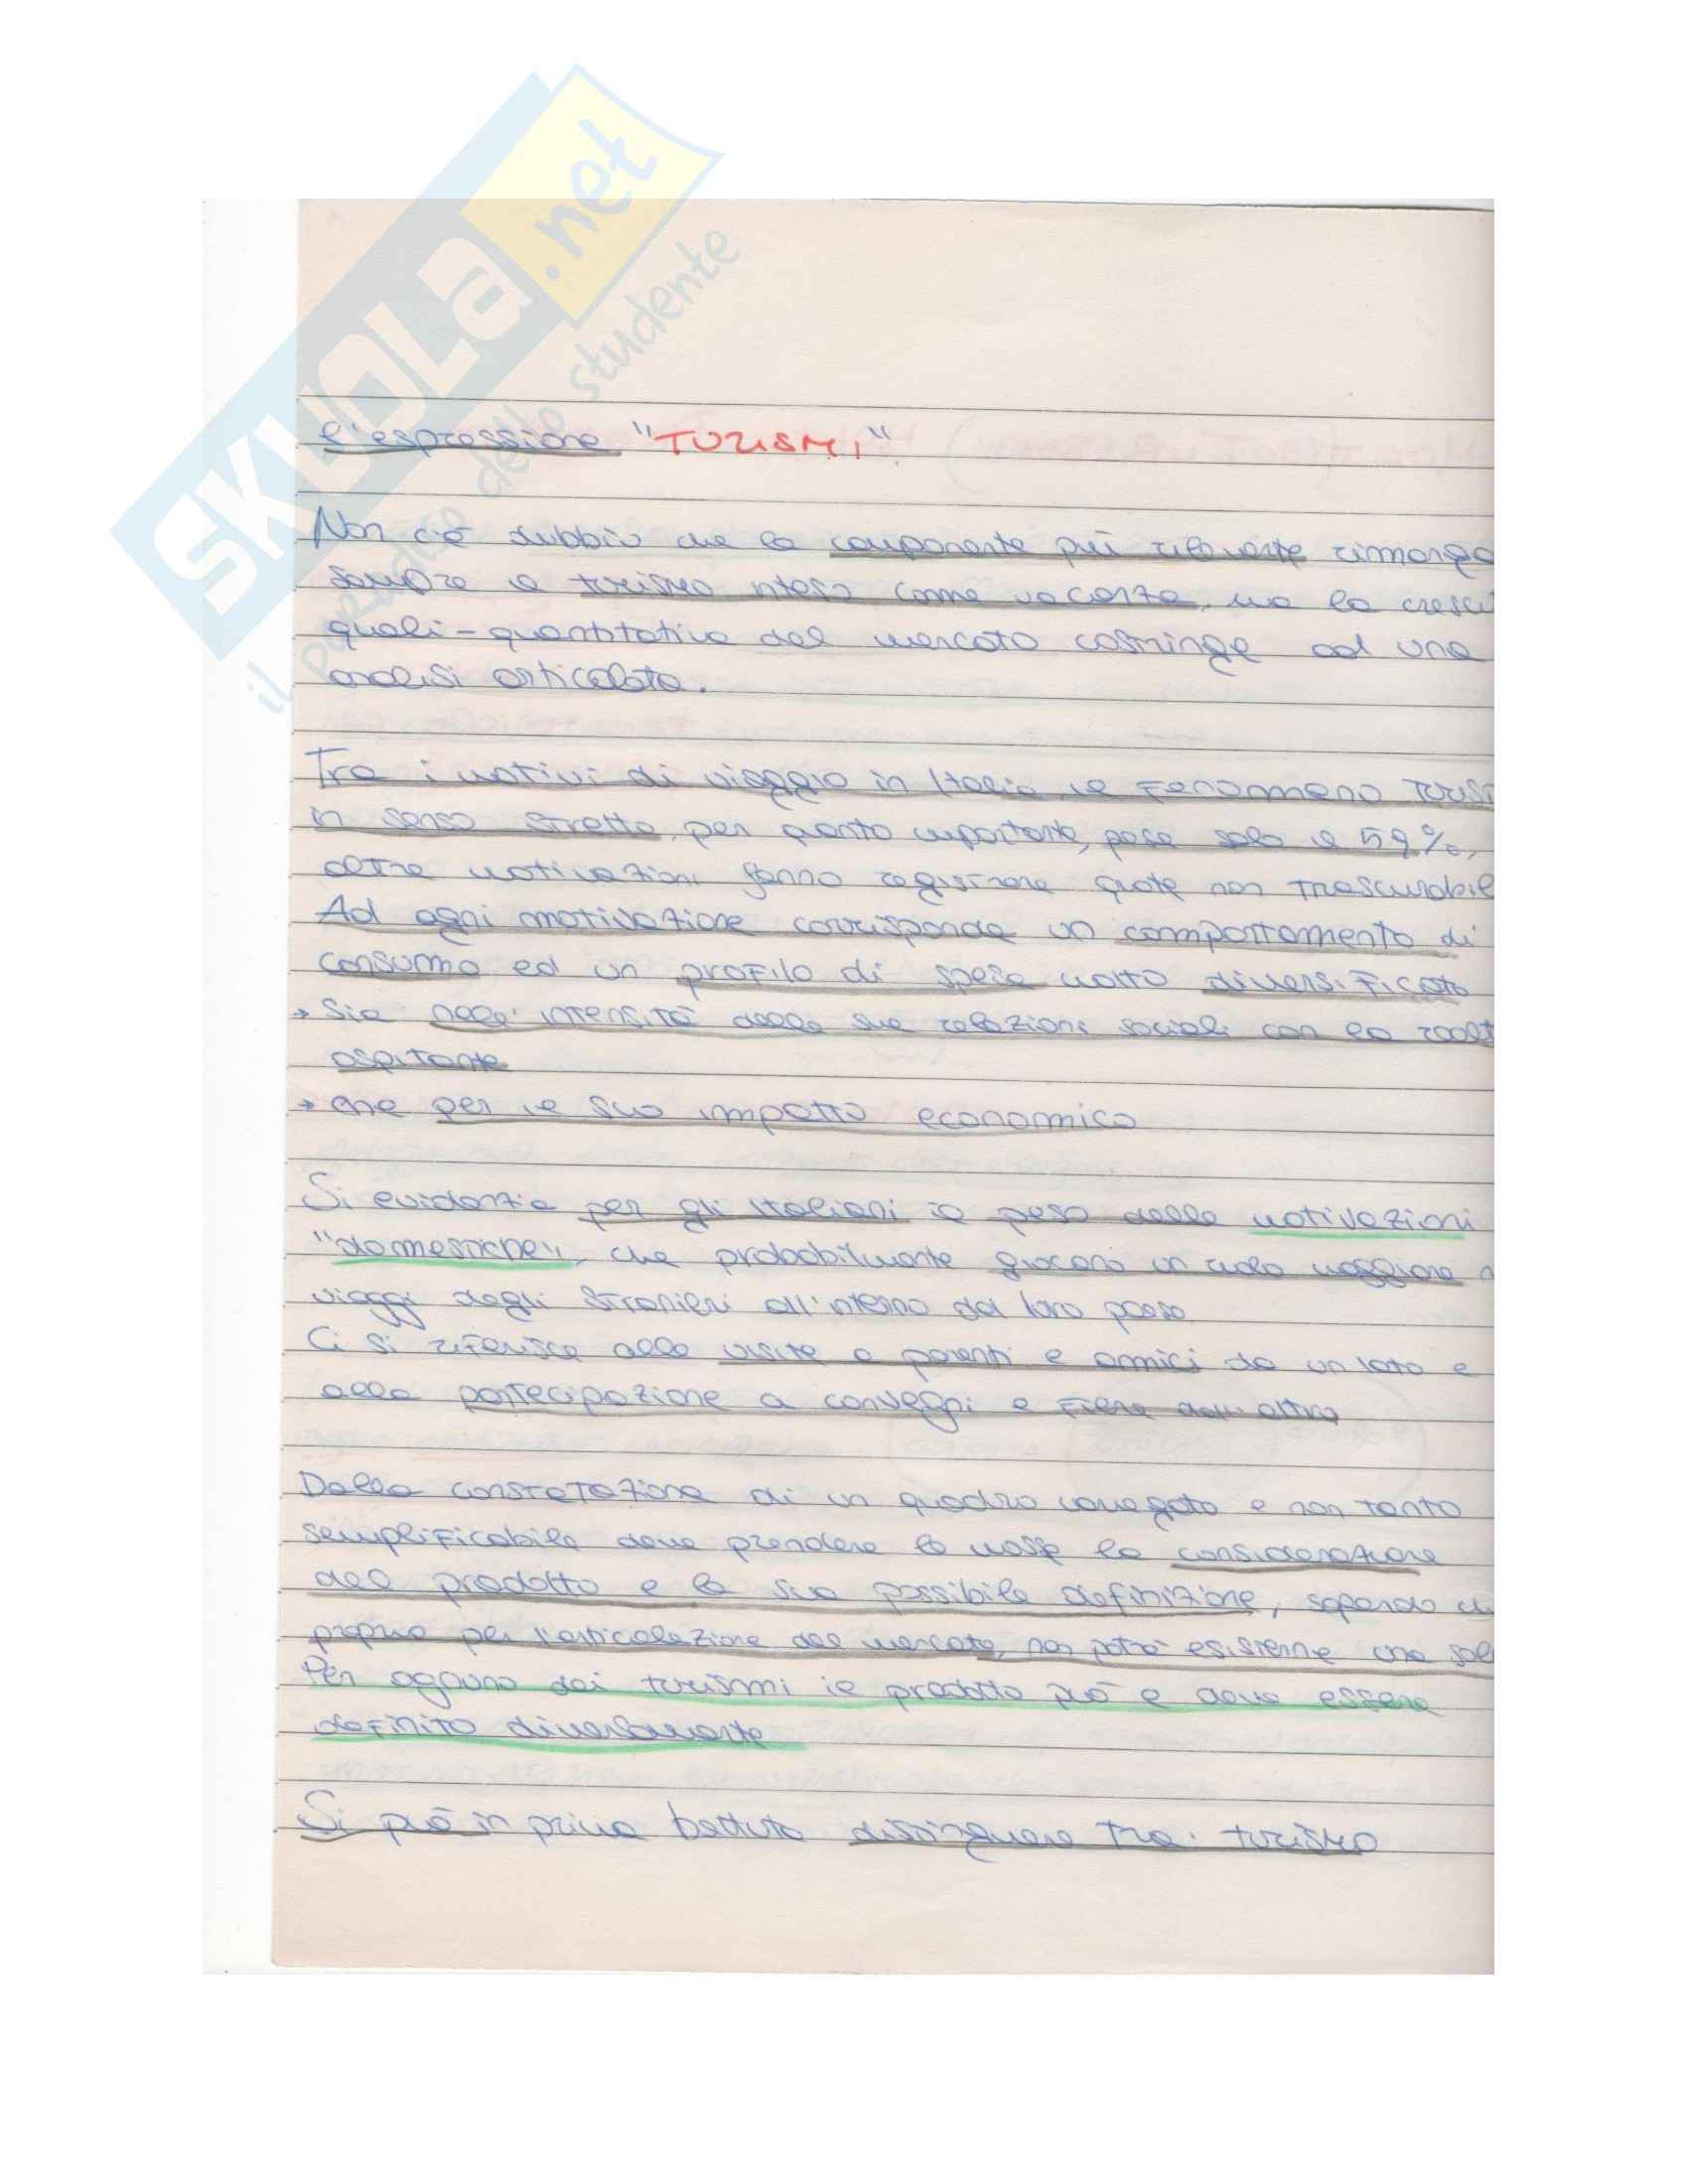 SKUOLA.net
il paradiso dello studente
l'espressione "TURISMI"
Non c'è dubbio che la componente più rilevante rimanga
sempre il turismo inteso come vacanza, ma la cresci
quali-quantitativa del mercato costringe ad una
analisi articolata.
Tra i motivi di viaggio in Italia il fenomeno turis
in senso stretto, per quanto importante, pesa solo il 59%,
altre motivazioni fanno registrare quote non trascurabil
Ad ogni motivazione corrisponde un comportamento di
consumo ed un profilo di spesa molto diversificato
→ Sia nelle intensità delle sue relazioni sociali con la realt
ospitante
→ che per il suo impatto economico
Si evidenzia per gli italiani il peso delle motivazioni
"domestiche", che probabilmente giocano un ruolo maggiore n
viaggi degli stranieri all'interno del loro paese
Ci si riferisce alle visite a parenti e amici da un lato e
alla partecipazione a convegni e fiere dall'altro
Dalla constatazione di un quadro variegato e non tanto
semplificabile deve prendere le mosse la considerazione
del prodotto e la sua possibile definizione, sapendo ch
proprio per l'articolazione del mercato, non potrà esisterne una sol
Per ognuno dei turismi il prodotto può e deve essere
definito diversamente
Si può in prima battuta distinguere tra: turismo